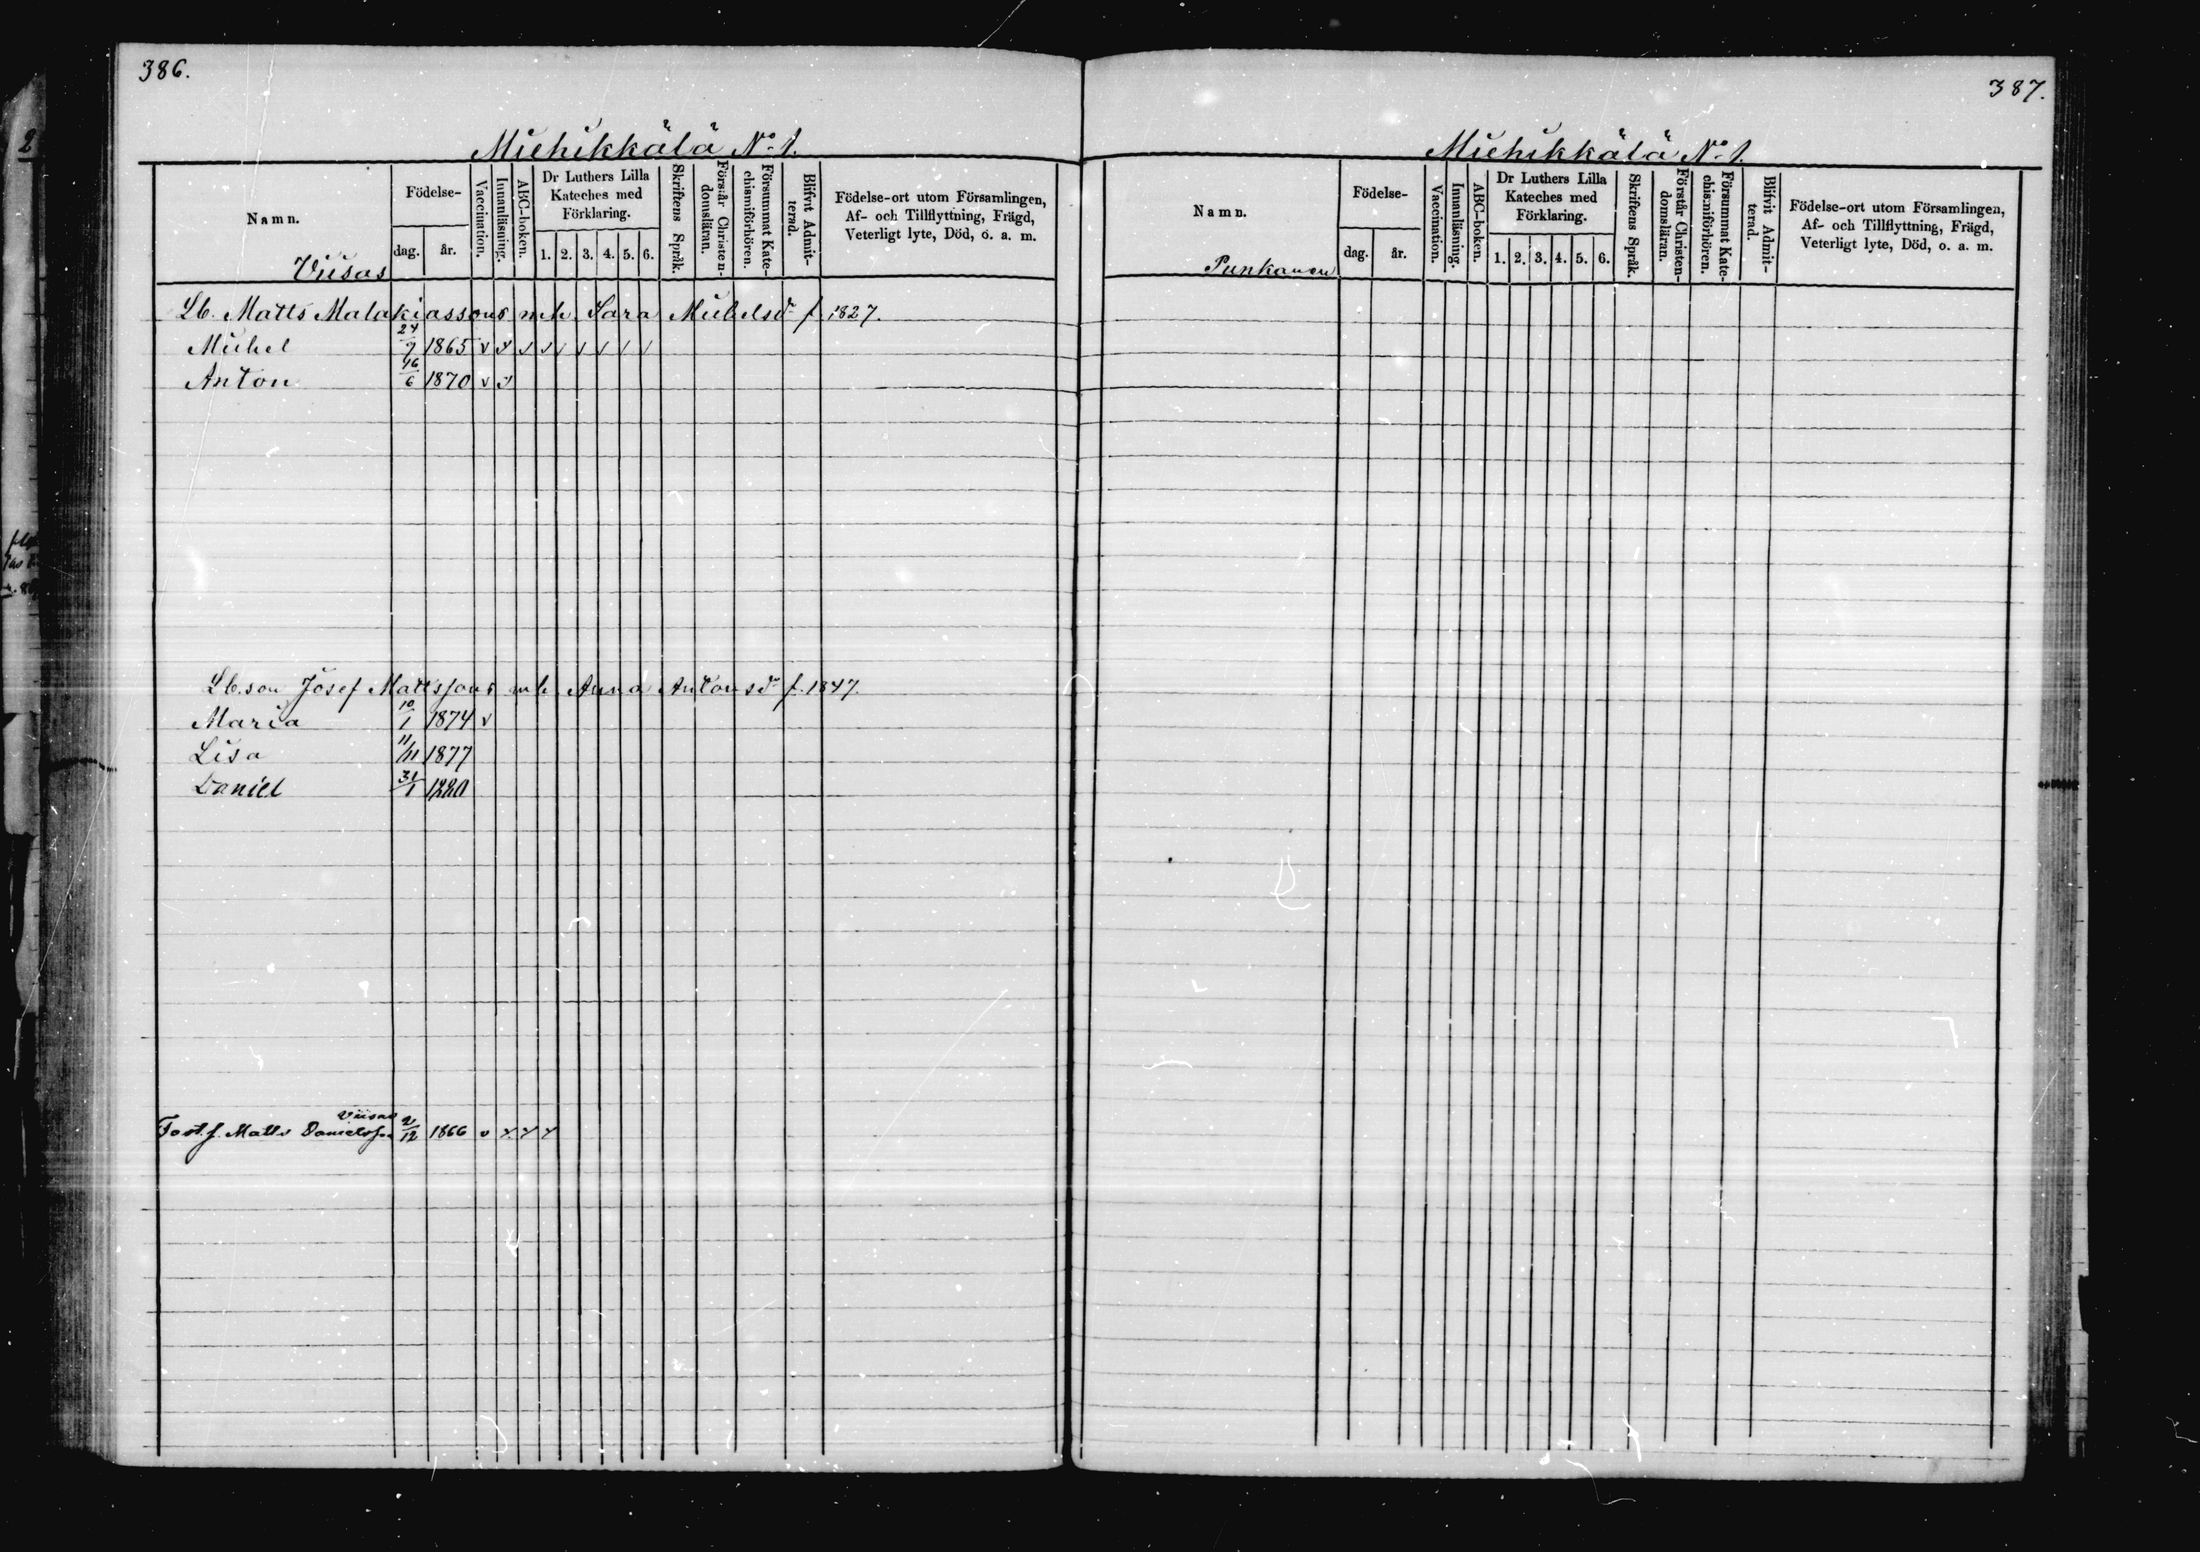 386.
Miehikkälä No 1.
Namn.
Viisas
Födelse-
dag.
år.
Vaccination.
Innanläsning.
ABC-boken.
Dr Luthers Lilla
Kateches med
Förklaring.
1. 2. 3. 4. 5. 6.
Skriftens Språk.
Förstår Christen-
domsläran.
Försummat Kate-
chismiförhören.
Blifvit Admit-
terad.
Födelse-ort utom Församlingen,
Af- och Tillflyttning, Frägd,
Veterligt lyte, Död, o. a. m.
Lb. Matts Malakiassons m h. Sara Michelsdr f. 1827.
Michel 24/7 1865 v v v v v v v v v
Anton 16/6 1870 v v
Lb.son Josef Mattssons m h. Anna Antonsdr f. 1847.
Maria 10/1 1874 v
Lisa 11/11 1877
Daniel 31/1 1880
Viisas
Fost.f. Matts Danielsson 2/12 1866 v x x x
387.
Miehikkälä No 1.
Namn.
Punkanen
Födelse-
dag.
år.
Vaccination.
Innanläsning.
ABC-boken.
Dr Luthers Lilla
Kateches med
Förklaring.
1. 2. 3. 4. 5. 6.
Skriftens Språk.
Förstår Christen-
domsläran.
Försummat Kate-
chismiförhören.
Blifvit Admit-
terad.
Födelse-ort utom Församlingen,
Af- och Tillflyttning, Frägd,
Veterligt lyte, Död, o. a. m.